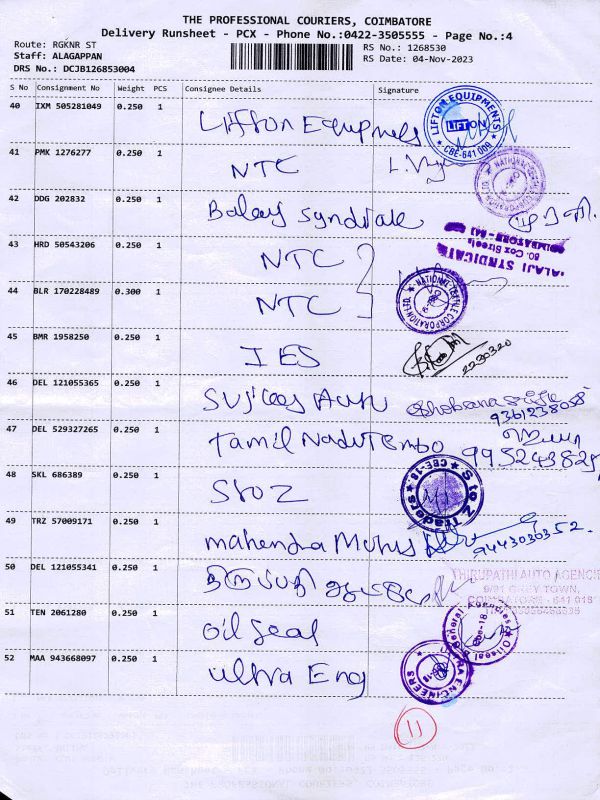 THE PROFESSIONAL COURIERS, COIMBATORE
Delivery Runsheet - PCX - Phone No.:0422-3505555 - Page No.:4
Route: RGKNR ST
RS No.: 1268530
Staff: ALAGAPPAN
RS Date: 04-Nov-2023
DRS No.: DCJB126853004
S No Consignment No Weight PCS Consignee Details Signature
40 IXM 505281049 0.250 1 Lifton Equipmets
LIFTON EQUIPMENTS LIFTON CBE-641 009
41 PMK 1276277 0.250 1 NTC
NATIONAL TEXTILE CORPORATION LTD.
42 DDG 202832 0.250 1 Balaji Syndicate
BALAJI SYNDICATE
80, Cox Street,
COIMBATORE - 641
43 HRD 50543206 0.250 1 NTC
44 BLR 170228489 0.300 1 NTC
NATIONAL TEXTILE CORPORATION LTD.
45 BMR 1958250 0.250 1 IES
2230320
46 DEL 121055365 0.250 1 Shobana
9361238058
47 DEL 529327265 0.250 1 Tamil Nadu Tembo
48 SKL 686389 0.250 1 StoZ
S to Z Traders CBE-18
49 TRZ 57009171 0.250 1 mahendra
9443030352.
50 DEL 121055341 0.250 1 திருப்பதி
THIRUPATHI AUTO AGENCIES
9/91 GREY TOWN,
COIMBATORE - 641 018
51 TEN 2061280 0.250 1 Oil Seal
Oilseal General Agencies Cbe-18
52 MAA 943668097 0.250 1 Ultra Eng
ENGINEERS
11